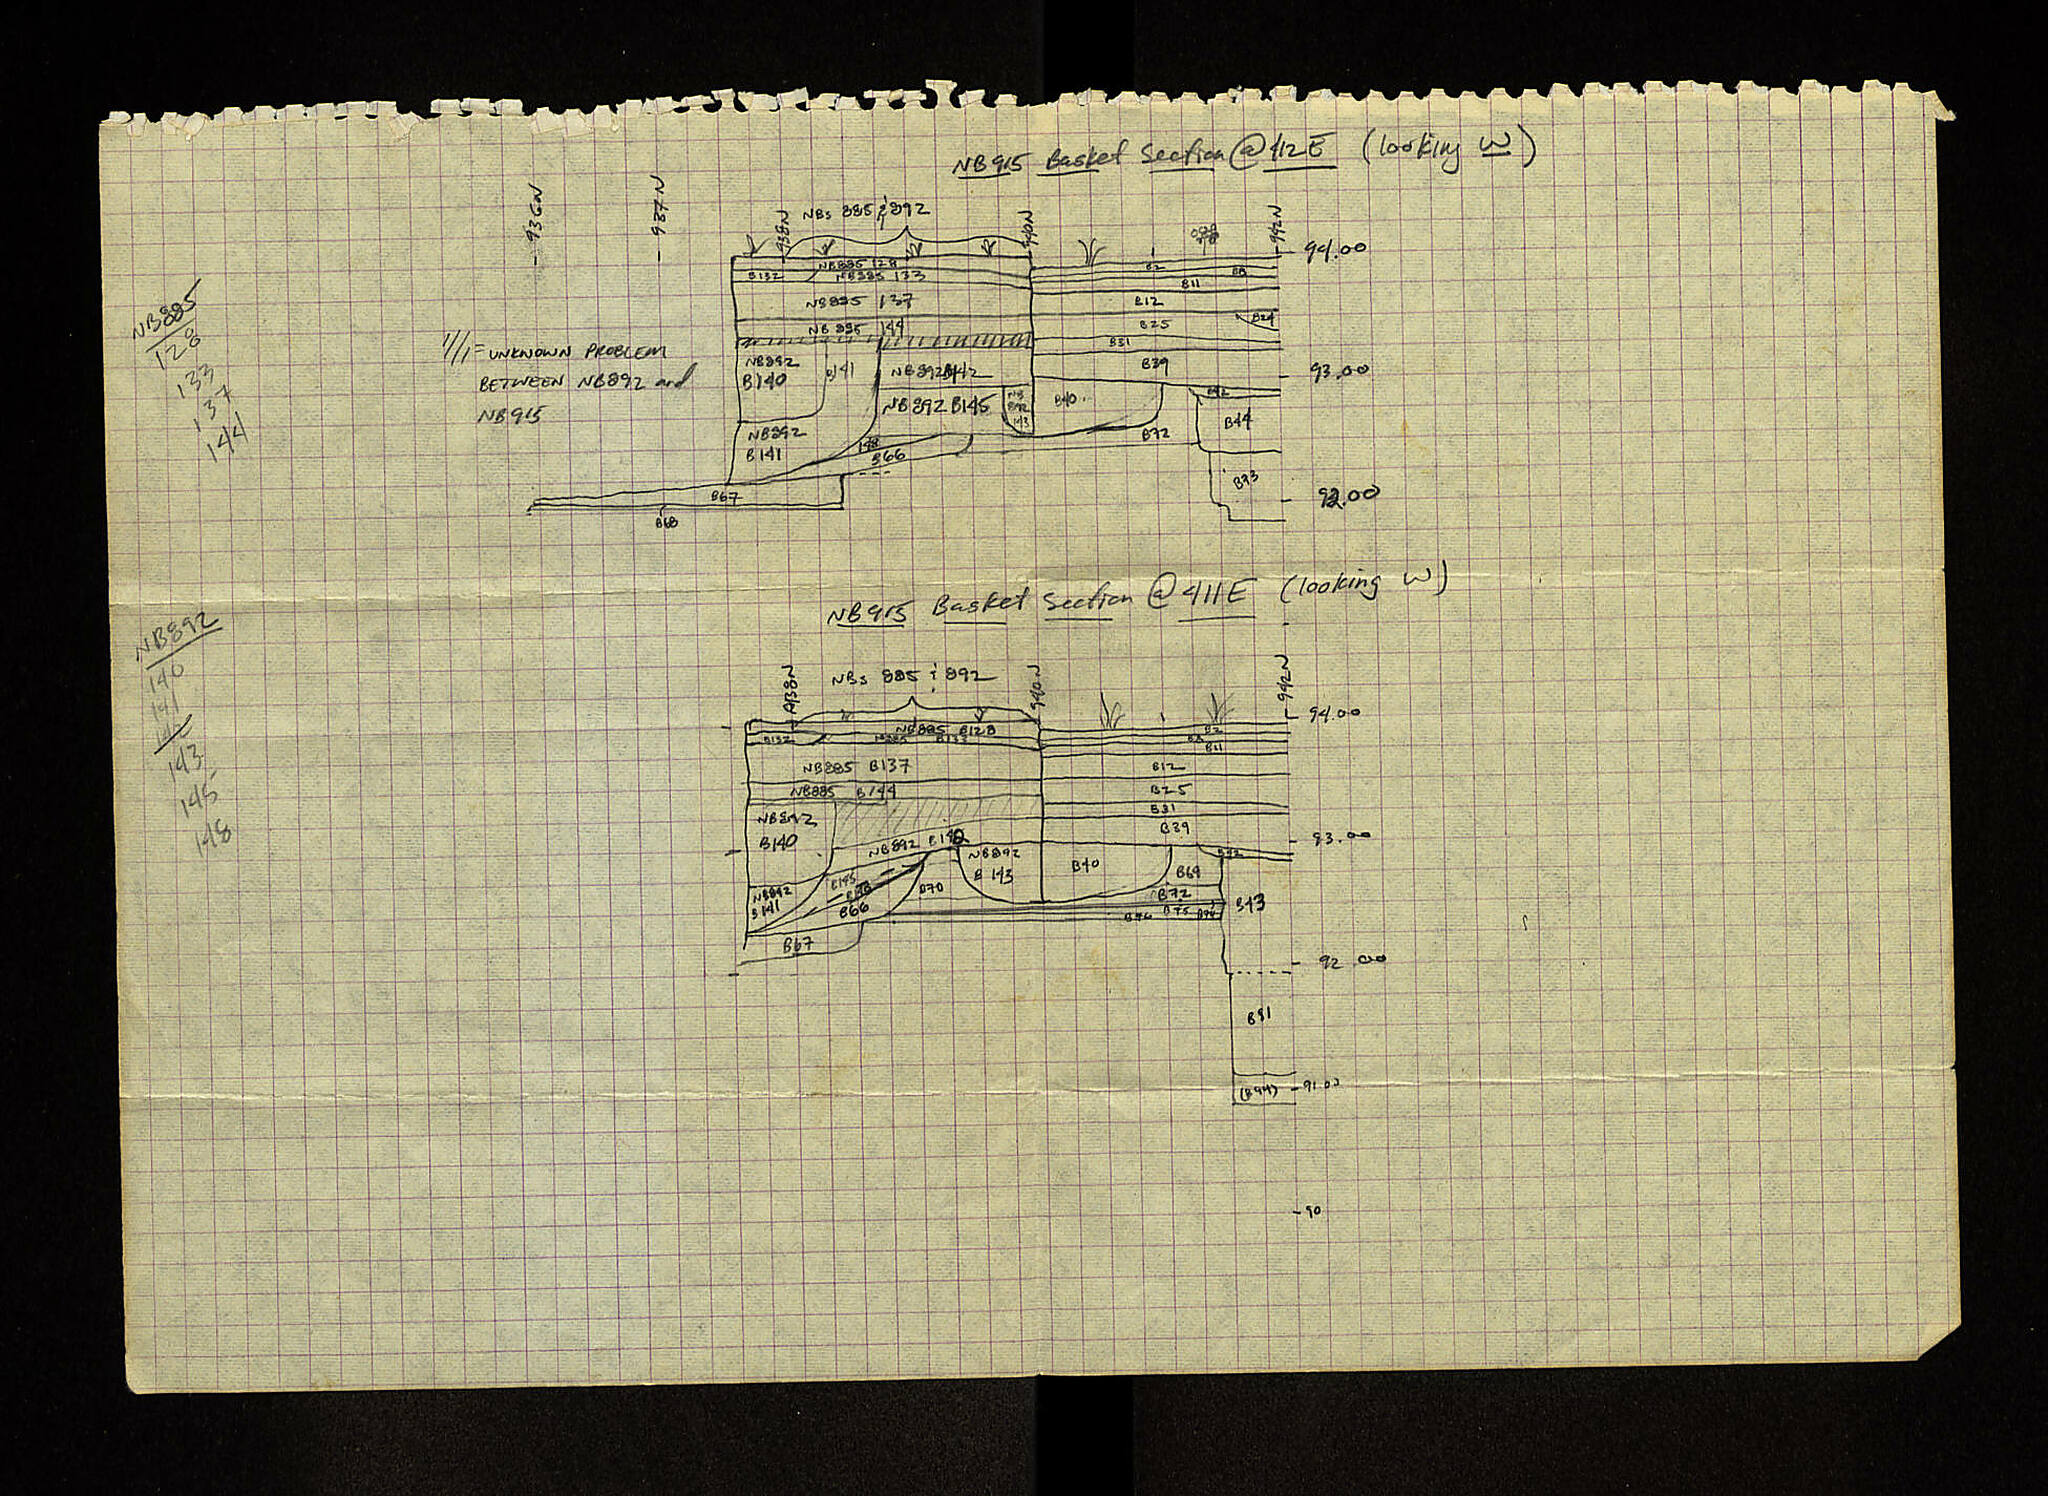 NB915 Basket Section @ 412E (looking W)
936N
937N
938N
NBs 885 & 892
940N
942N
94.00
NB885 128
B132
NB885 133
B2
B8
B11
NB885 137
B12
NB885 144
B25
B24
B31
NB885
128
133
137
144
= UNKNOWN PROBLEM
BETWEEN NB892 and
NB915
NB892
B140
B141
NB892 B142
B39
93.00
NB892 B145
NB
892
143
B40
B42
B44
NB892
B141
148
B66
B72
B73
B67
92.00
B68
NB915 Basket Section @ 411E (looking W)
NB892
140
141
143
145
148
938N
NBs 885 & 892
940N
942N
94.00
NB885 B128
B132
NB885 B133
B2
B8
B11
NB885 B137
B12
NB885 B144
B25
B31
NB892
B140
B39
93.00
NB892 B142
B42
NB892
B143
B40
B69
B145
B70
NB892
B141
B66
B72
B43
B76
B75
B74
B67
92.00
B81
(B94)
91.00
90